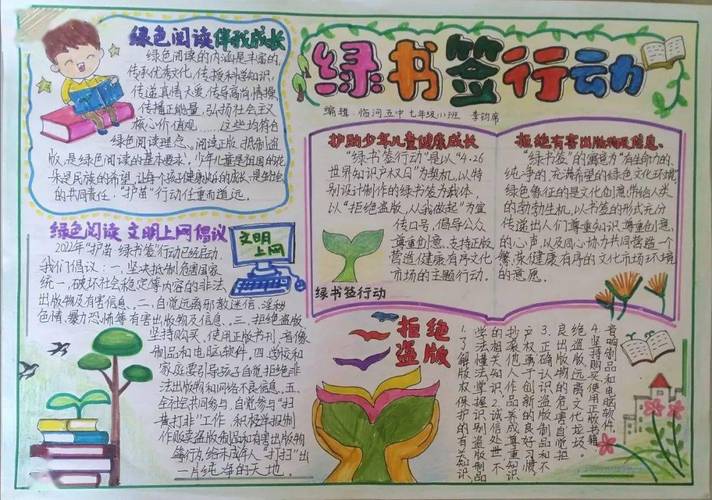 绿书签行动
编辑：临河五中七年级11班
绿色阅读伴我成长
绿色阅读的内涵是丰富的,
传承优秀文化,传授科学知识,
传递真情大爱,传导高尚情操,
传播正能量,弘扬社会主义
核心价值观……这些均符合
绿色阅读理念。阅读正版,抵制盗
版,是绿色阅读的基本要求,少年儿童是祖国的花
朵是民族的希望,让每个孩子健康快乐的成长,是
的共同责任."护苗"行动任重而道远。
护助少年儿童健康成长
"绿书签行动"是以"4·26
世界知识产权日"为契机,以特
别设计制作的绿书签为载体,
以"拒绝盗版,从我做起"为宣
传口号,倡导公众
尊重创意,支持正版
营造健康有序文化
市场的主题行动。
绿书签行动
拒绝有害出版物及信息。
"绿书签"的寓意为"有生命力的,
纯净的,充满希望的绿色文化环境,
绿色象征的是文化创意带给人类
的勃勃生机,以书签的形式充分
传递出人们尊重知识,尊重创意
的心声,以及同心协力共同营造一个
繁荣健康有序的文化市场环境
的意愿。
绿色阅读 文明上网倡议
2022年"护苗·绿书签"行动已经启动.
我们倡议：一、坚决抵制危害国家
统一,破坏社会稳定等内容的非法
出版物及有害信息。二、自觉远离邪教迷信,淫秽
色情、暴力恐怖等有害出版物及信息。三、拒绝盗版
坚持购买、使用正版书刊、音像
制品和电脑软件。四、学校和
家庭要引导孩子自觉拒绝非
法出版物和网络不良信息。五、
全社会共同参与,自觉参与"扫
黄打非"工作,积极举报制
作购买盗版制品和有害出版物
等行为,给未成年人"打扫"出
一片纯净的天地。
文明
上网
拒绝
盗版
1.了解版权保护的有关知识,
学法懂法,掌握识别盗版制品
的相关知识。2.诚信处世,不
抄袭他人作品,养成尊重知识
产权,勇于创新的良好习惯。
3.正确认识盗版制品和不
良出版物的危害,自觉拒
绝盗版,远离文化垃圾。
4.坚持购买、使用正版书籍
音响制品和电脑软件。